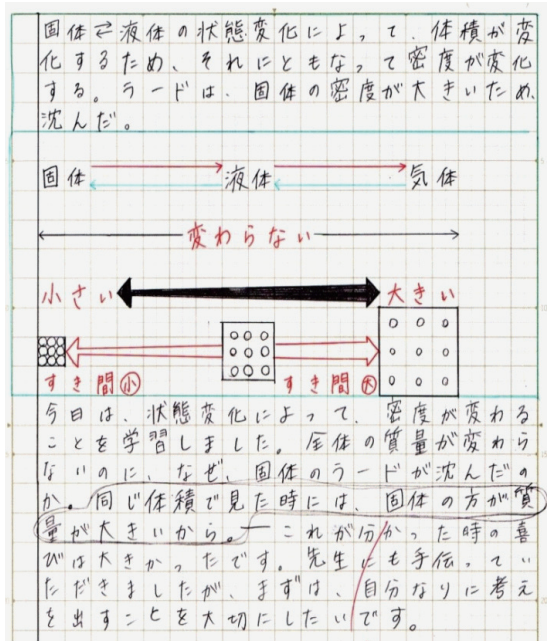 固体⇄液体の状態変化によって、体積が変
化するため、それにともなって密度が変化
する。ラードは、固体の密度が大きいため、
沈んだ。
固体 液体 気体
変わらない
小さい 大きい
すき間小 すき間大
今日は、状態変化によって、密度が変わる
ことを学習しました。全体の質量が変わら
ないのに、なぜ、固体のラードが沈んだの
か。同じ体積で見た時には、固体の方が質
量が大きいから。―これが分かった時の喜
びは大きかったです。先生にも手伝ってい
ただきましたが、まずは、自分なりに考え
を出すことを大切にしたいです。